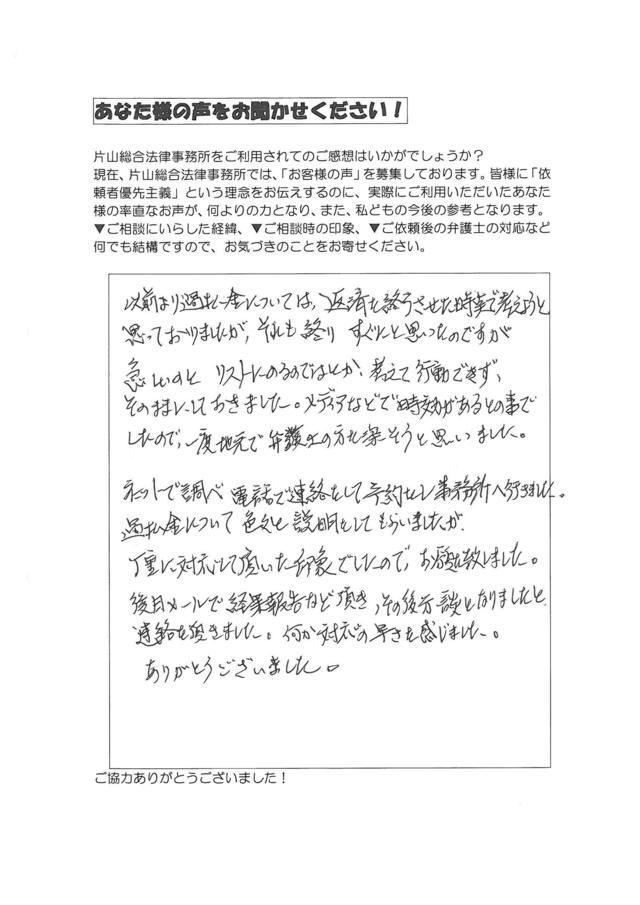 あなた様の声をお聞かせください！
片山総合法律事務所をご利用されてのご感想はいかがでしょうか？
現在、片山総合法律事務所では、「お客様の声」を募集しております。皆様に「依
頼者優先主義」という理念をお伝えするのに、実際にご利用いただいたあなた
様の率直なお声が、何よりの力となり、また、私どもの今後の参考となります。
▼ご相談にいらした経緯、▼ご相談時の印象、▼ご依頼後の弁護士の対応など
何でも結構ですので、お気づきのことをお寄せください。
以前より過払い金については、返済を終了させた時点で考えようと
思っておりましたが、それも終り すぐにと思ったのですが
忙しいのと リストにのるのではとか、考えて行動できず、
そのままにしておきました。メディアなどで時効があるとの事で
したので、一度地元で弁護士の方を探そうと思いました。
ネットで調べ 電話で連絡をして予約をし 事務所へ行きました。
過払い金について 色々と説明をしてもらいましたが
丁重に対応して頂いた印象でしたので、お願い致しました。
後日メールで経過報告など頂き、その後示談となりましたと
連絡を頂きました。何か対応の早さを感じました。
ありがとうございました。
ご協力ありがとうございました！